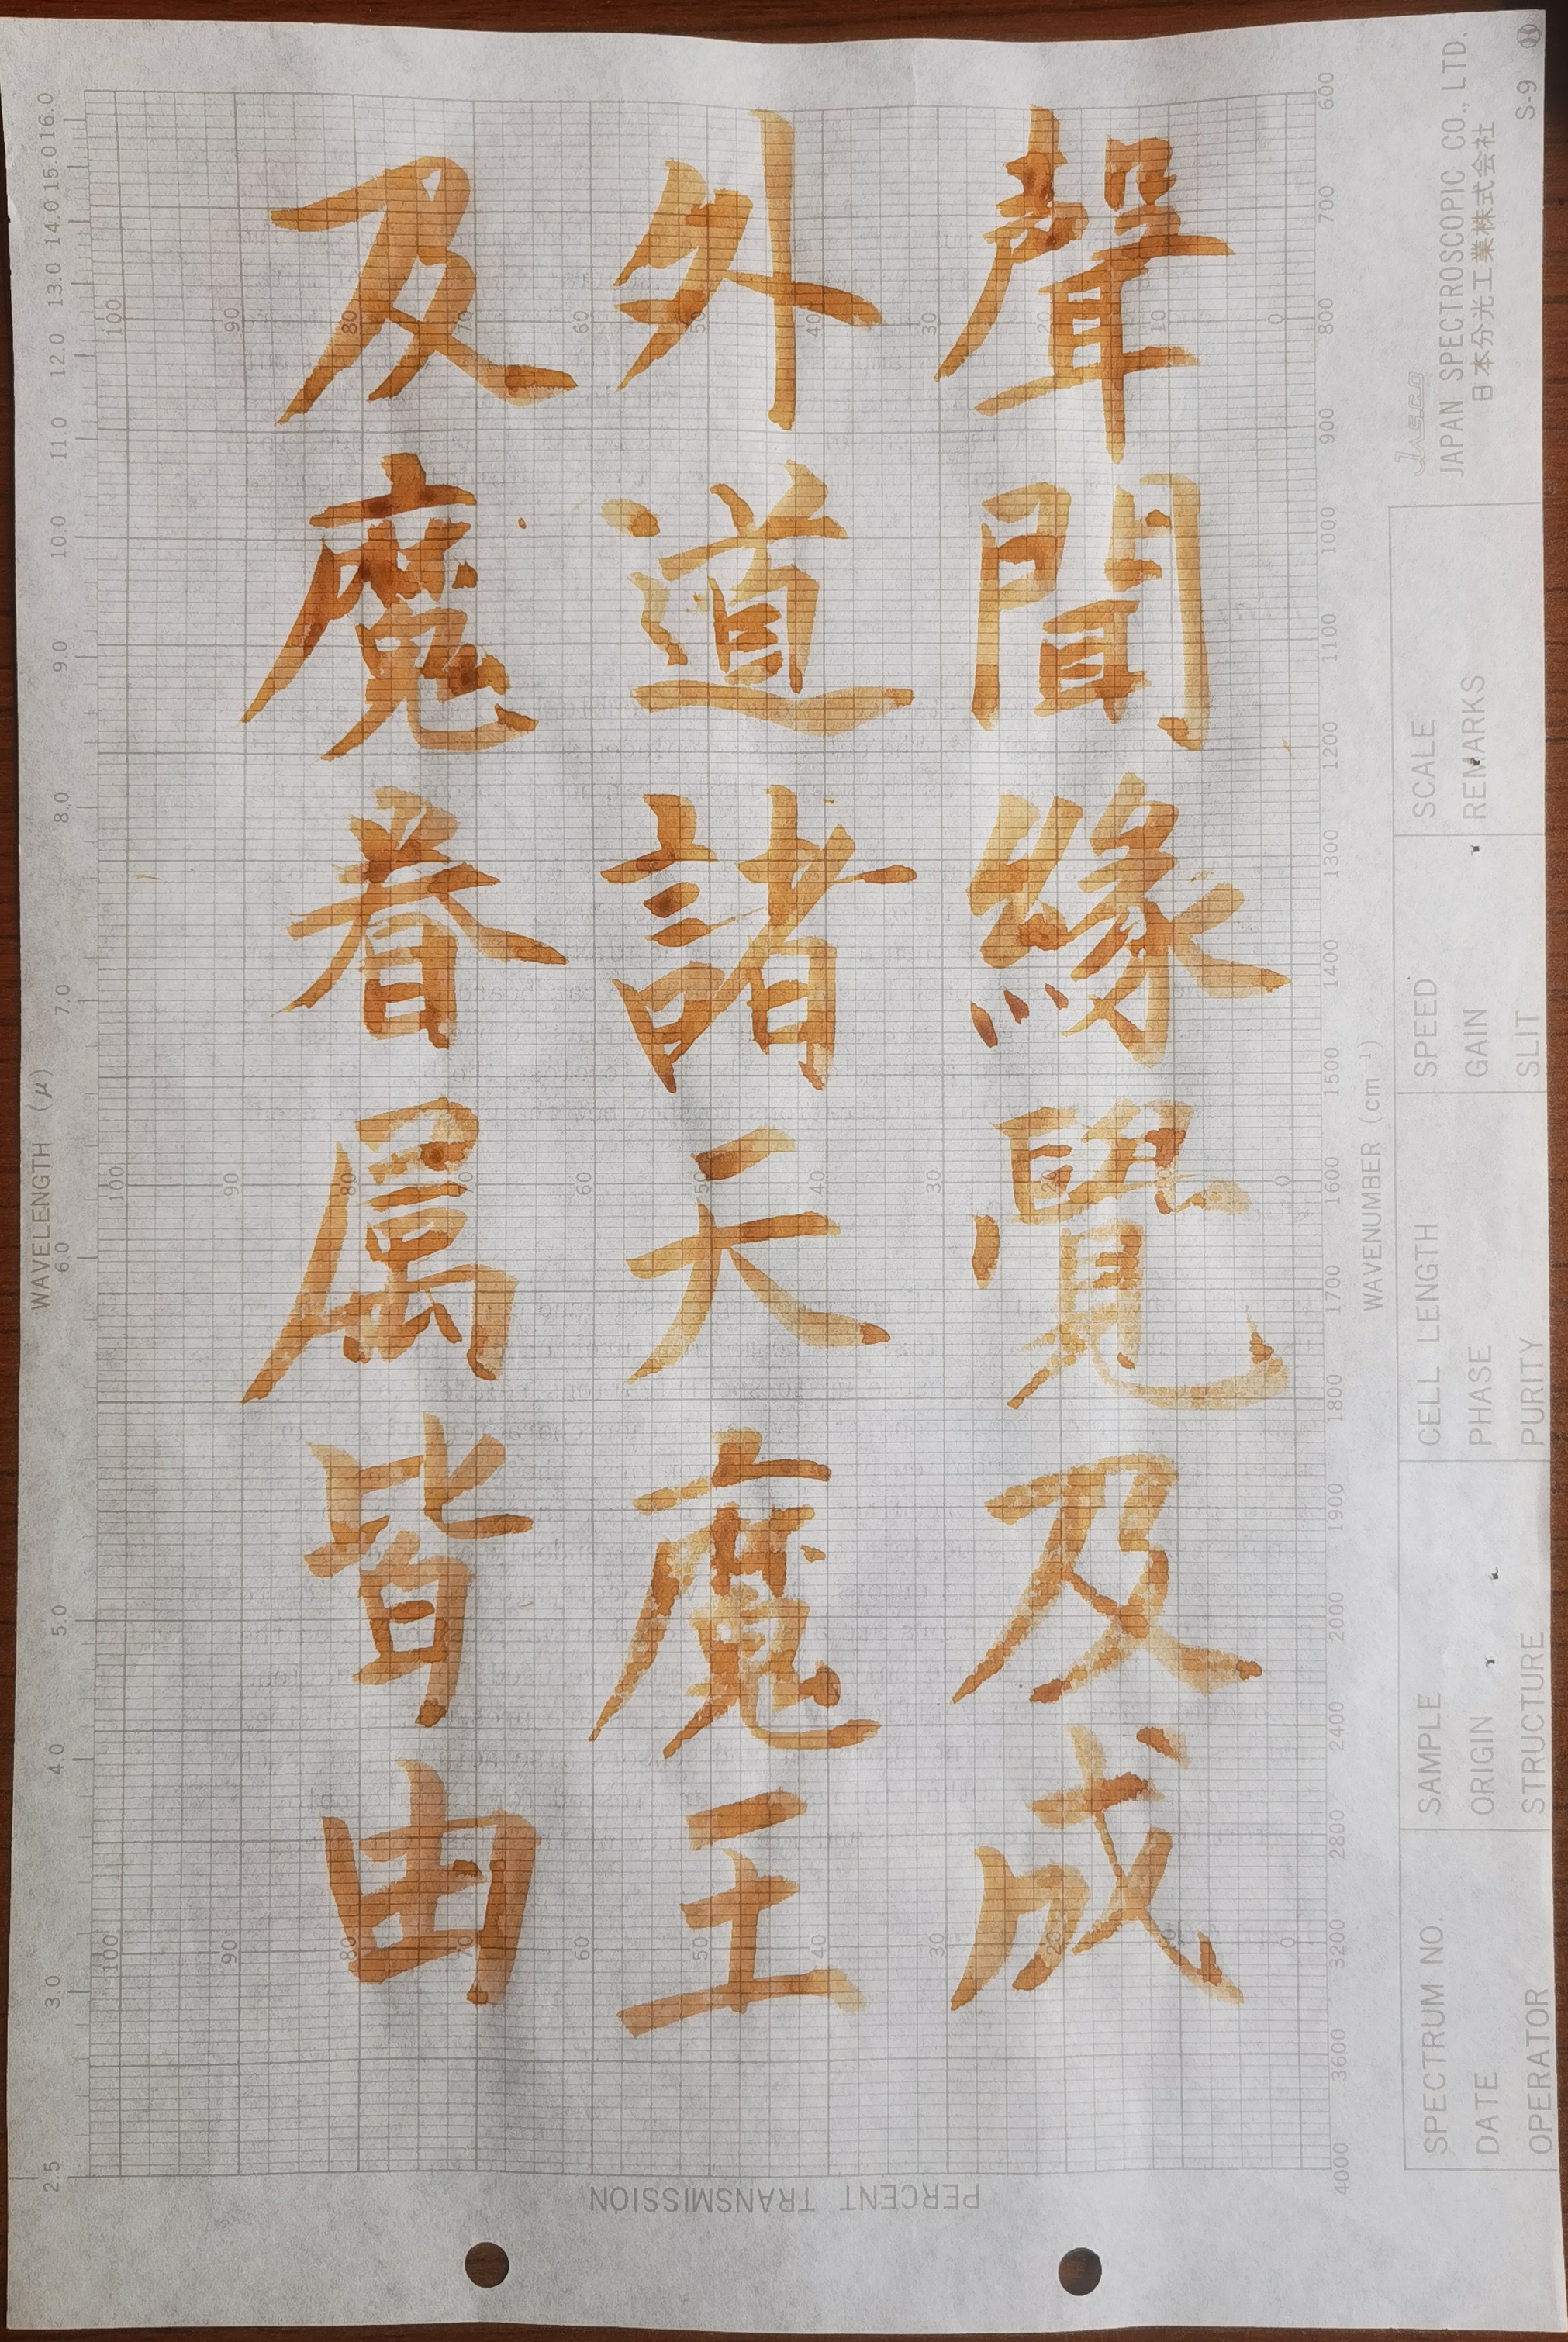 聲聞緣覺及成
外道諸天魔王
及魔眷属皆由
WAVELENGTH (μ)
2.5 3.0 4.0 5.0 6.0 7.0 8.0 9.0 10.0 11.0 12.0 13.0 14.0 15.0 16.0
100 90 80 70 60 50 40 30 20 10 0
100 90 80 70 60 50 40 30 20 0
100 90 80 70 60 50 40 30 20 10 0
4000 3600 3200 2800 2400 2000 1900 1800 1700 1600 1500 1400 1300 1200 1100 1000 900 800 700 600
WAVENUMBER (cm⁻¹)
PERCENT TRANSMISSION
SPECTRUM NO.
DATE
OPERATOR
SAMPLE
ORIGIN
STRUCTURE
CELL LENGTH
PHASE
PURITY
SPEED
GAIN
SLIT
SCALE
REMARKS
Jasco
JAPAN SPECTROSCOPIC CO., LTD.
日本分光工業株式会社
S-9